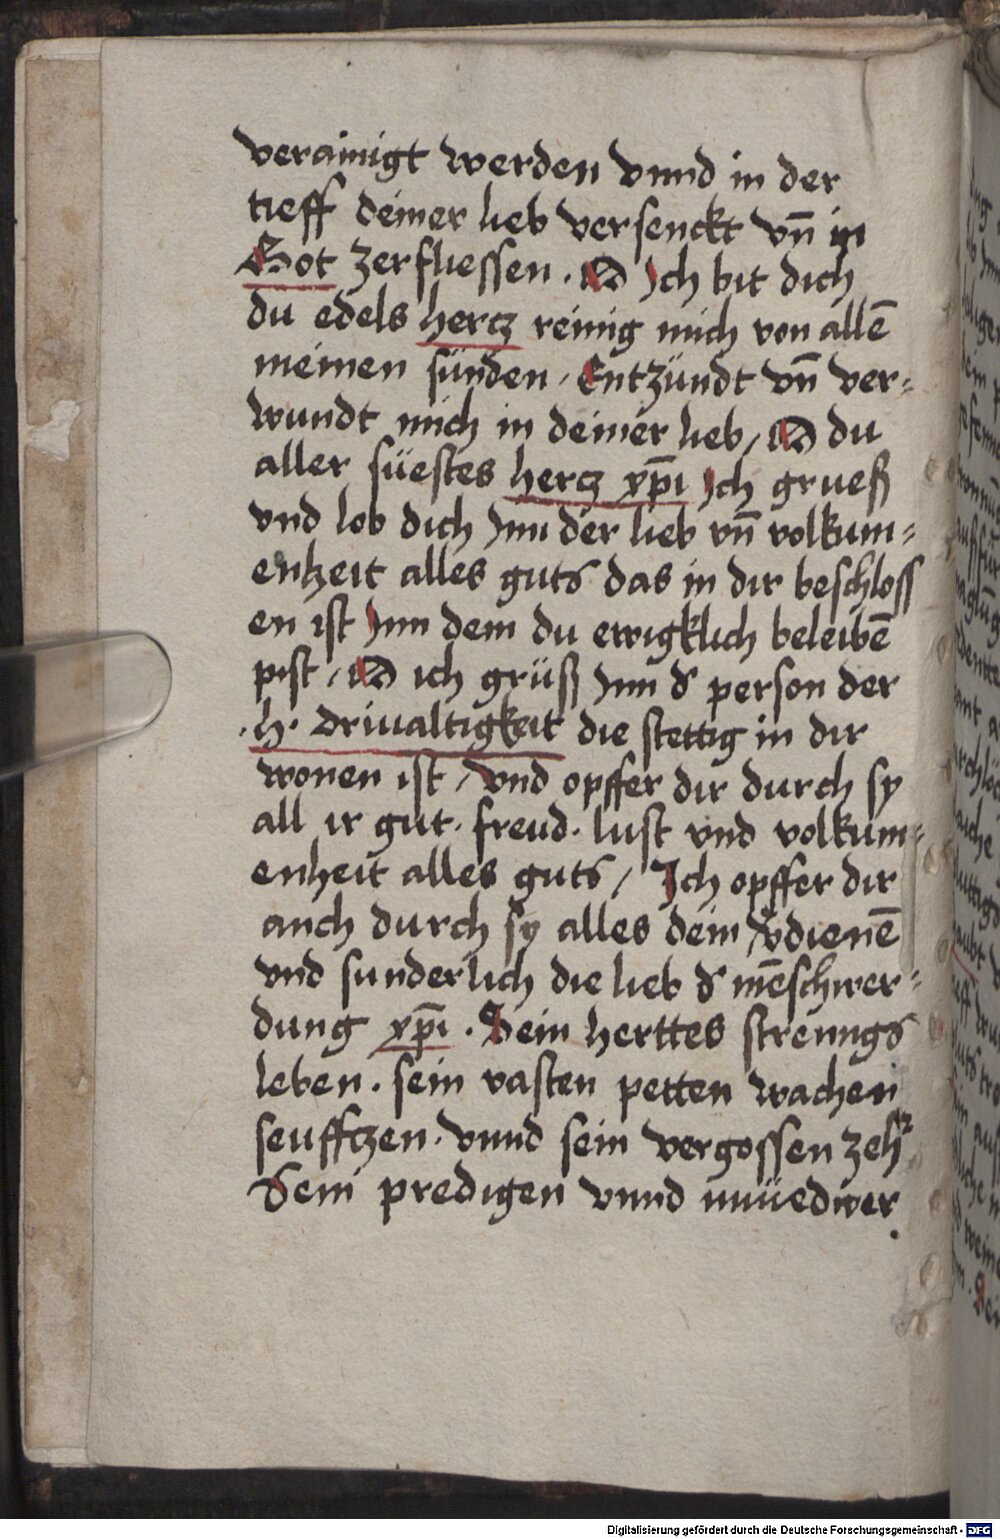 verainigt werden vnnd in der
tieff deiner lieb versenckt vn̄ in
Got zerfliessen. O Ich bit dich
du edels hercz reinig mich von allē
meinen sünden. Entzündt vn̄ ver⸗
wundt mich in deiner lieb / O du
aller süestes hercz xp̄i Ich grueß
vnd lob dich Inn der lieb vn̄ volkum⸗
enheit alles guts das in dir beschloss
en ist Inn dem du ewigklich beleibē
pist / O ich grüß Inn d' person der
.h. Driualtigkeit die stettig in dir
wonen ist / vnd opffer dir durch sy
all ir gut. freud. lust vnd volkum⸗
enheit alles guts / Ich opffer dir
auch durch sy alles dein v'dienē
vnd sunderlich die lieb d' mēschwer⸗
dung xp̄i. Sein herttes strenngs
leben. sein vasten petten wachen
seufftzen. vnnd sein vergossen zeh'
Sein predigen vnnd müedwer
Digitalisierung gefördert durch die Deutsche Forschungsgemeinschaft - DFG